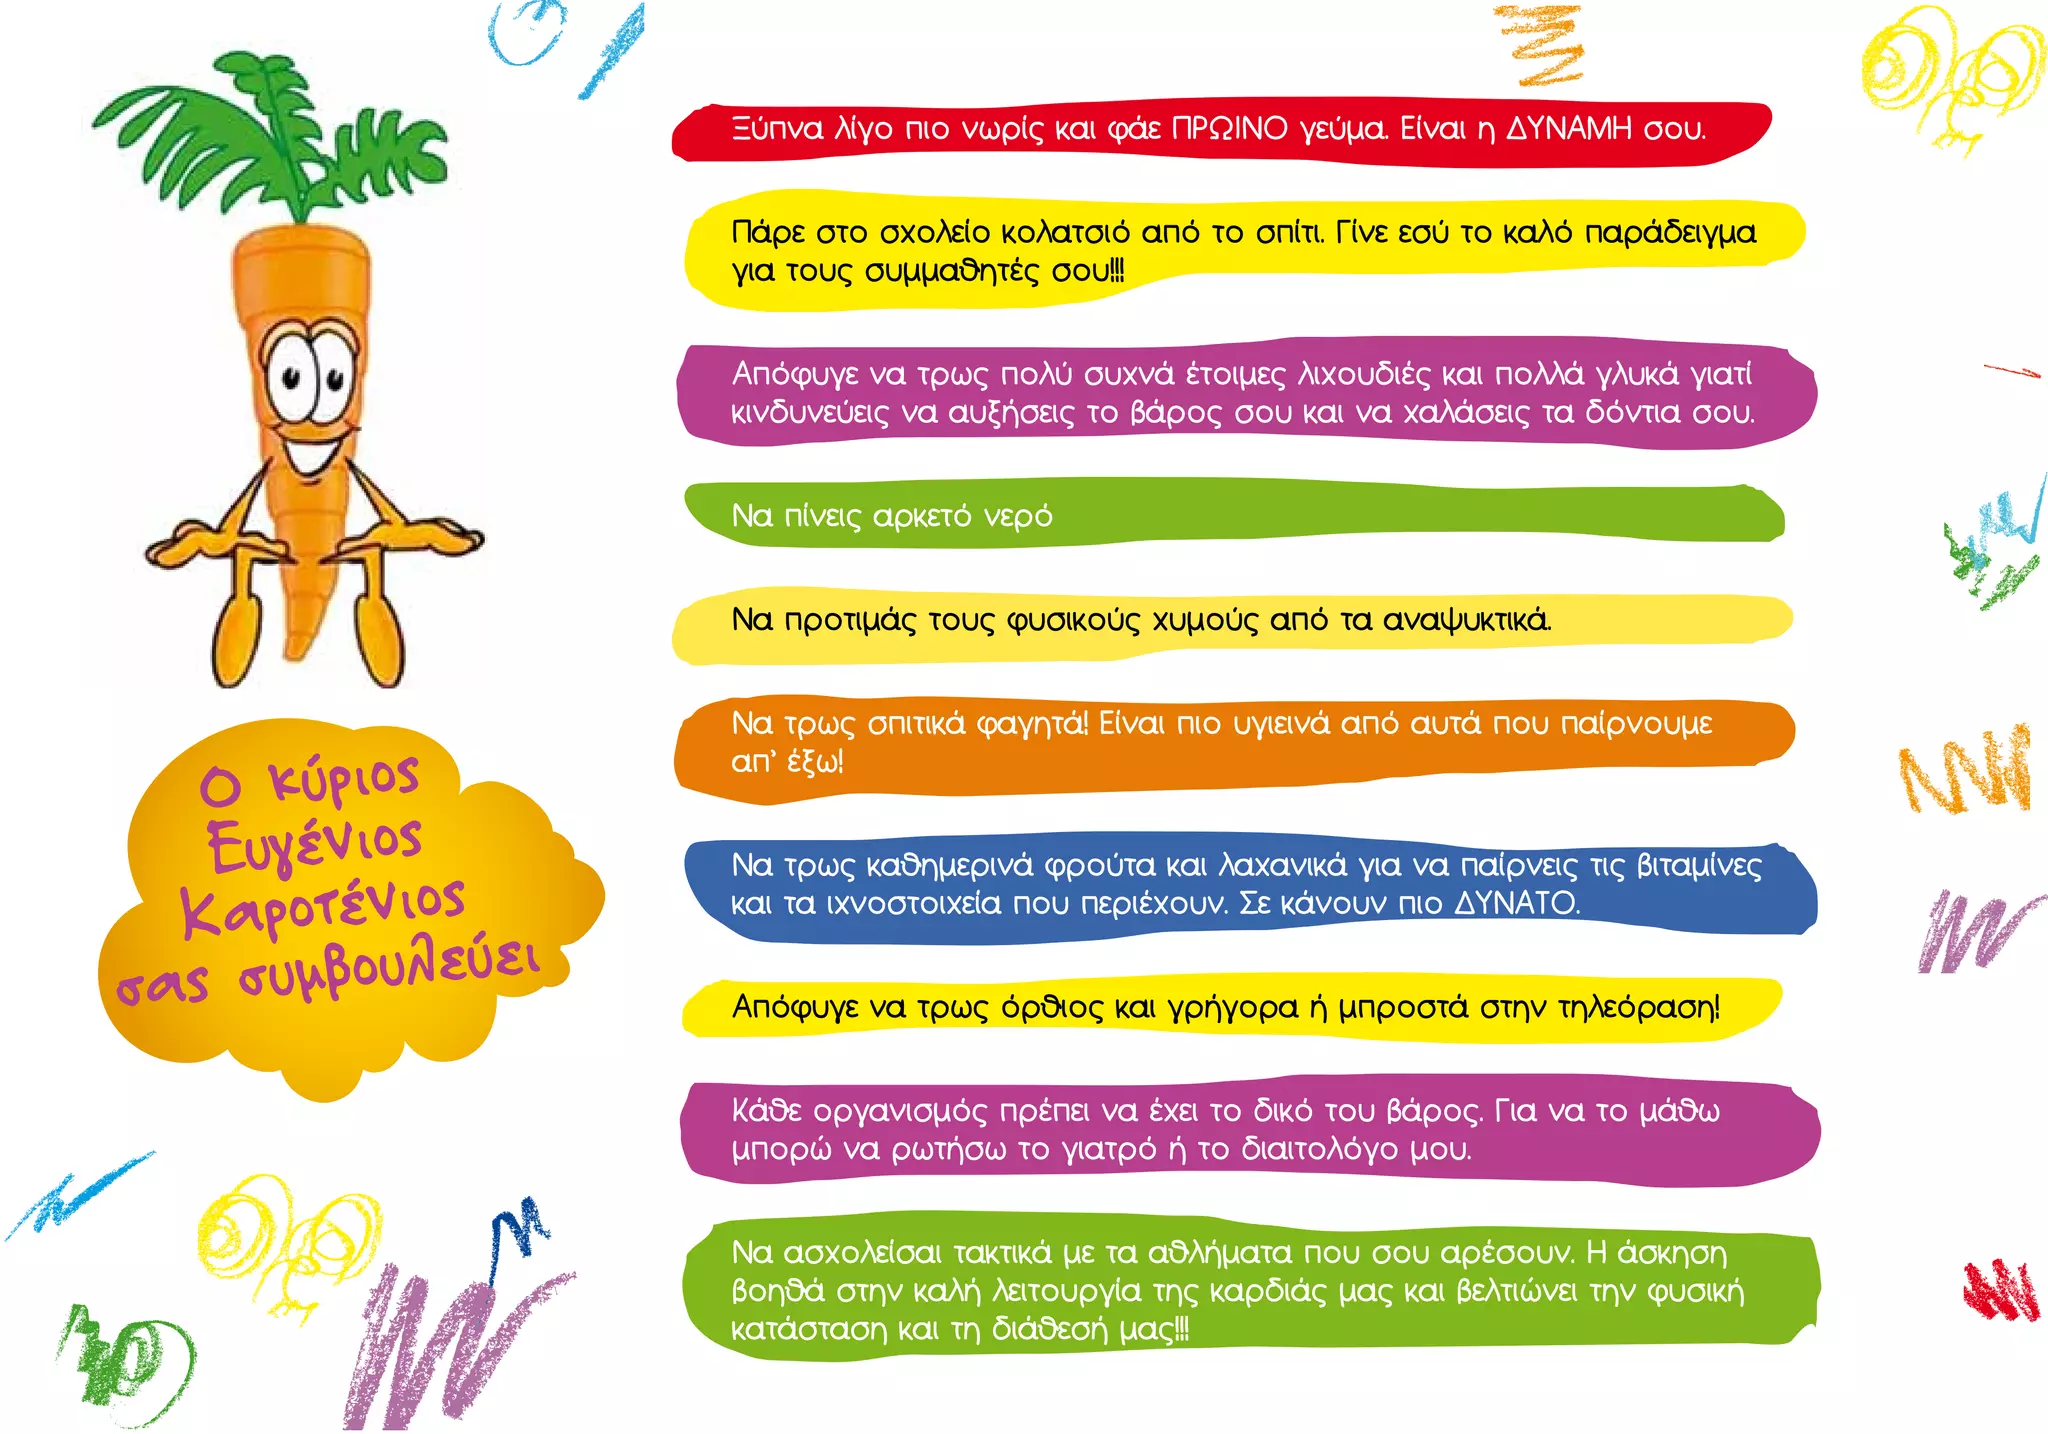 Ο κύριος
Ευγένιος
Καροτένιος
σας συμβουλεύει
Ξύπνα λίγο πιο νωρίς και φάε ΠΡΩΙΝΟ γεύμα. Είναι η ΔΥΝΑΜΗ σου.
Πάρε στο σχολείο κολατσιό από το σπίτι. Γίνε εσύ το καλό παράδειγμα
για τους συμμαθητές σου!!!
Απόφυγε να τρως πολύ συχνά έτοιμες λιχουδιές και πολλά γλυκά γιατί
κινδυνεύεις να αυξήσεις το βάρος σου και να χαλάσεις τα δόντια σου.
Να πίνεις αρκετό νερό
Να προτιμάς τους φυσικούς χυμούς από τα αναψυκτικά.
Να τρως σπιτικά φαγητά! Είναι πιο υγιεινά από αυτά που παίρνουμε
απ’ έξω!
Να τρως καθημερινά φρούτα και λαχανικά για να παίρνεις τις βιταμίνες
και τα ιχνοστοιχεία που περιέχουν. Σε κάνουν πιο ΔΥΝΑΤΟ.
Απόφυγε να τρως όρθιος και γρήγορα ή μπροστά στην τηλεόραση!
Κάθε οργανισμός πρέπει να έχει το δικό του βάρος. Για να το μάθω
μπορώ να ρωτήσω το γιατρό ή το διαιτολόγο μου.
Να ασχολείσαι τακτικά με τα αθλήματα που σου αρέσουν. Η άσκηση
βοηθά στην καλή λειτουργία της καρδιάς μας και βελτιώνει την φυσική
κατάσταση και τη διάθεσή μας!!!